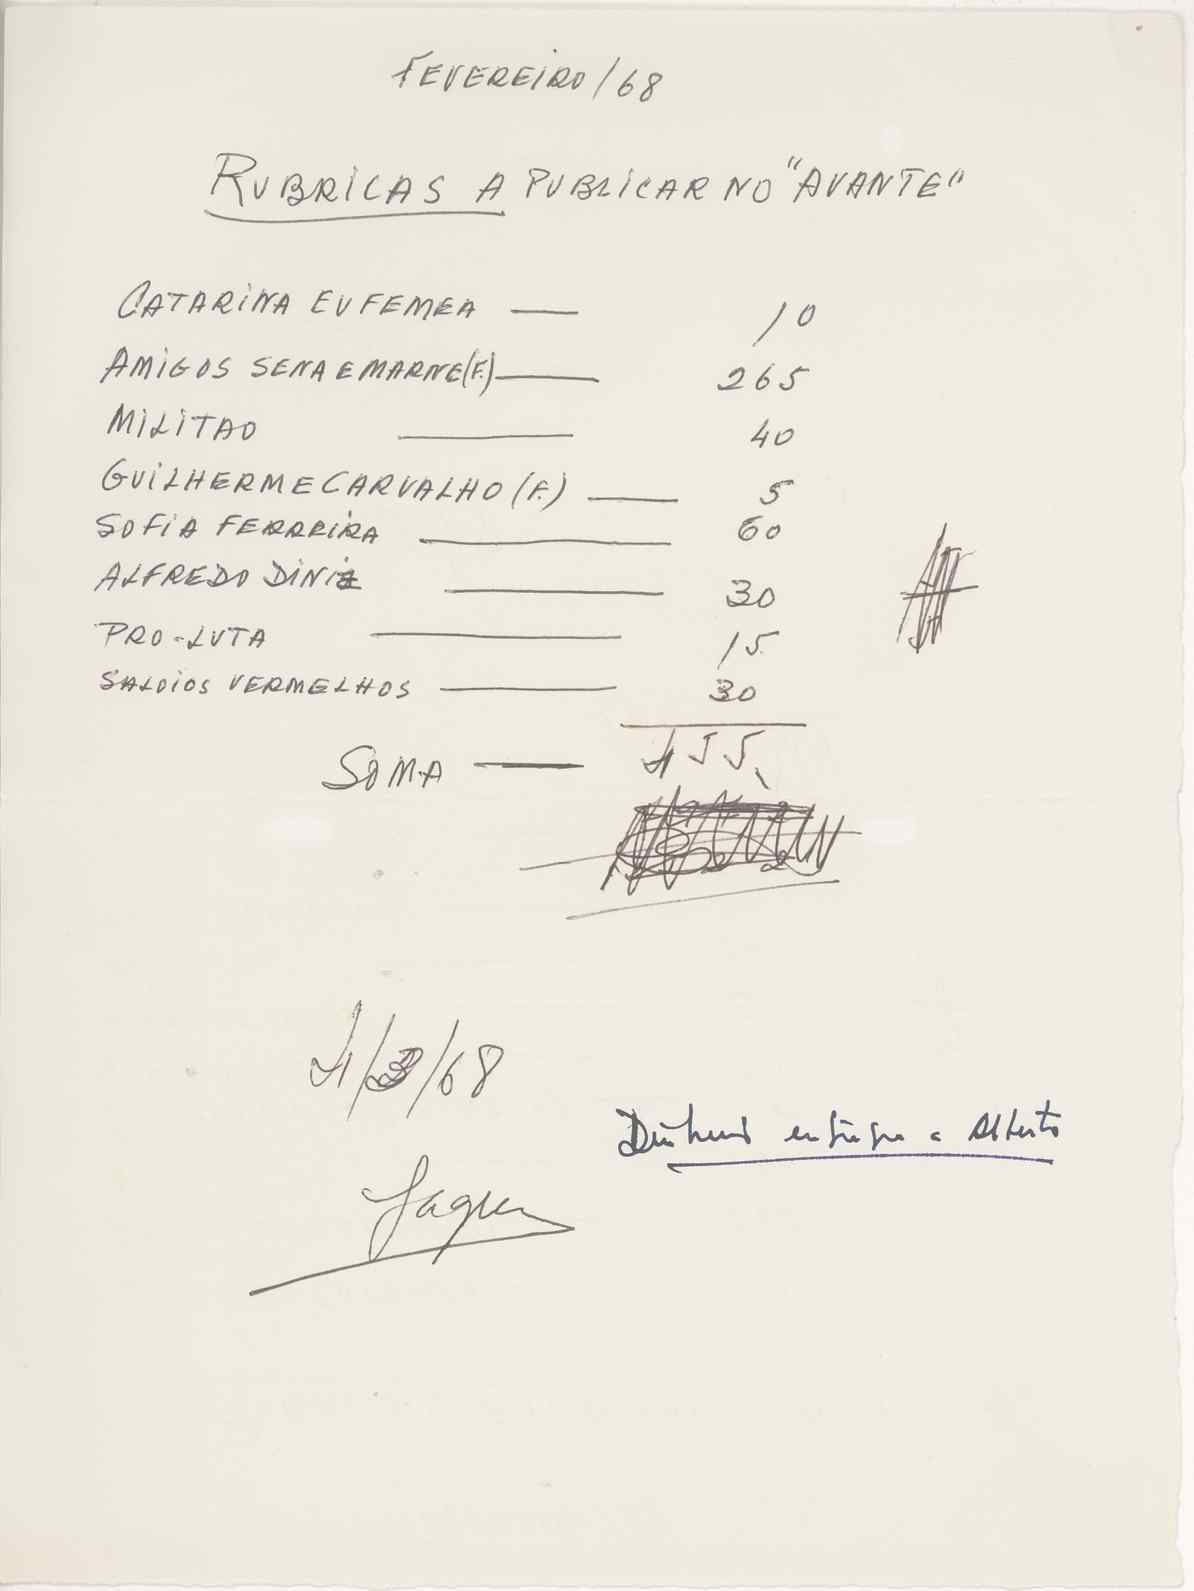 FEVEREIRO/68
RUBRICAS A PUBLICAR NO "AVANTE"
CATARINA EUFEMEA — 10
AMIGOS SENA E MARNE (F.) — 265
MILITAO — 40
GUILHERME CARVALHO (F.) — 5
SOFIA FERREIRA — 60
ALFREDO DINIZ — 30
PRO-LUTA — 15
SALOIOS VERMELHOS — 30
SOMA — 455
4/3/68
Dinheiro entregue a Alberto